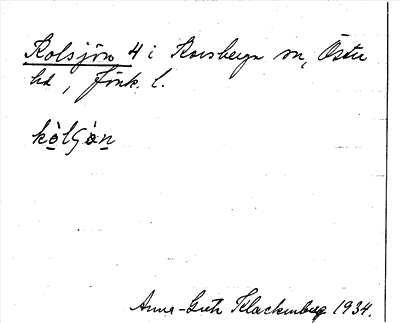 Kolsjön 4 i Korsberga sn, Östra
hd, Jönk. l.
kòlʃòn
Anna-Greta Klackenberg 1934.